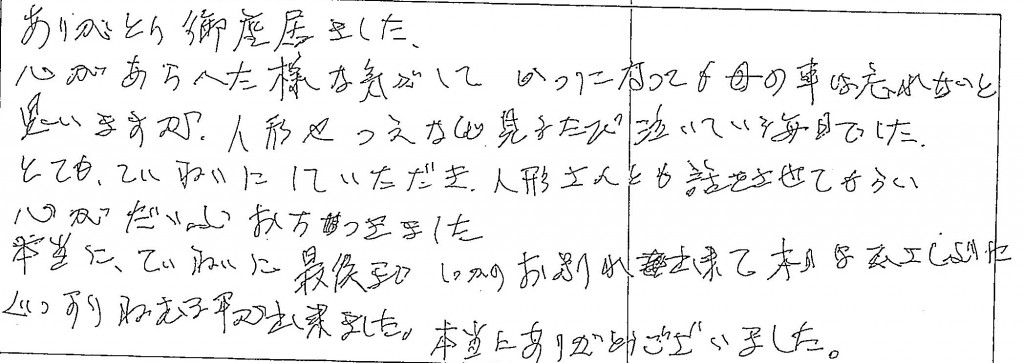 ありがとう御座居ました、
心があらへた様な気がして いつになっても母の事は忘れないと
思いますが、人形やつえなど見るたび泣いている毎日でした
とても、ていねいにしていただき、人形さんとも話をさせてもらい
心がだいぶおちつきました
本当に、ていねいに最後まで お別れ出来て本日は
ぐっすりねむる事が出来ました。本当にありがとうございました。